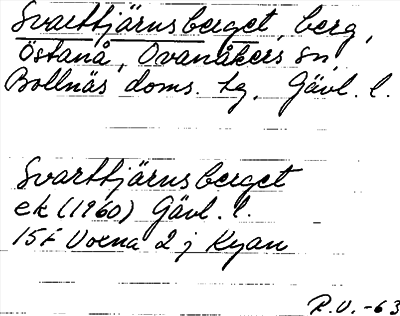 Svarttjärnsberget, berg,
Östanå, Ovanåkers sn,
Bollnäs doms. tg, Gävl. l.
Svarttjärnsberget
ek (1960) Gävl. l.
15F Voxna 2 j Kyan
R.U. -63